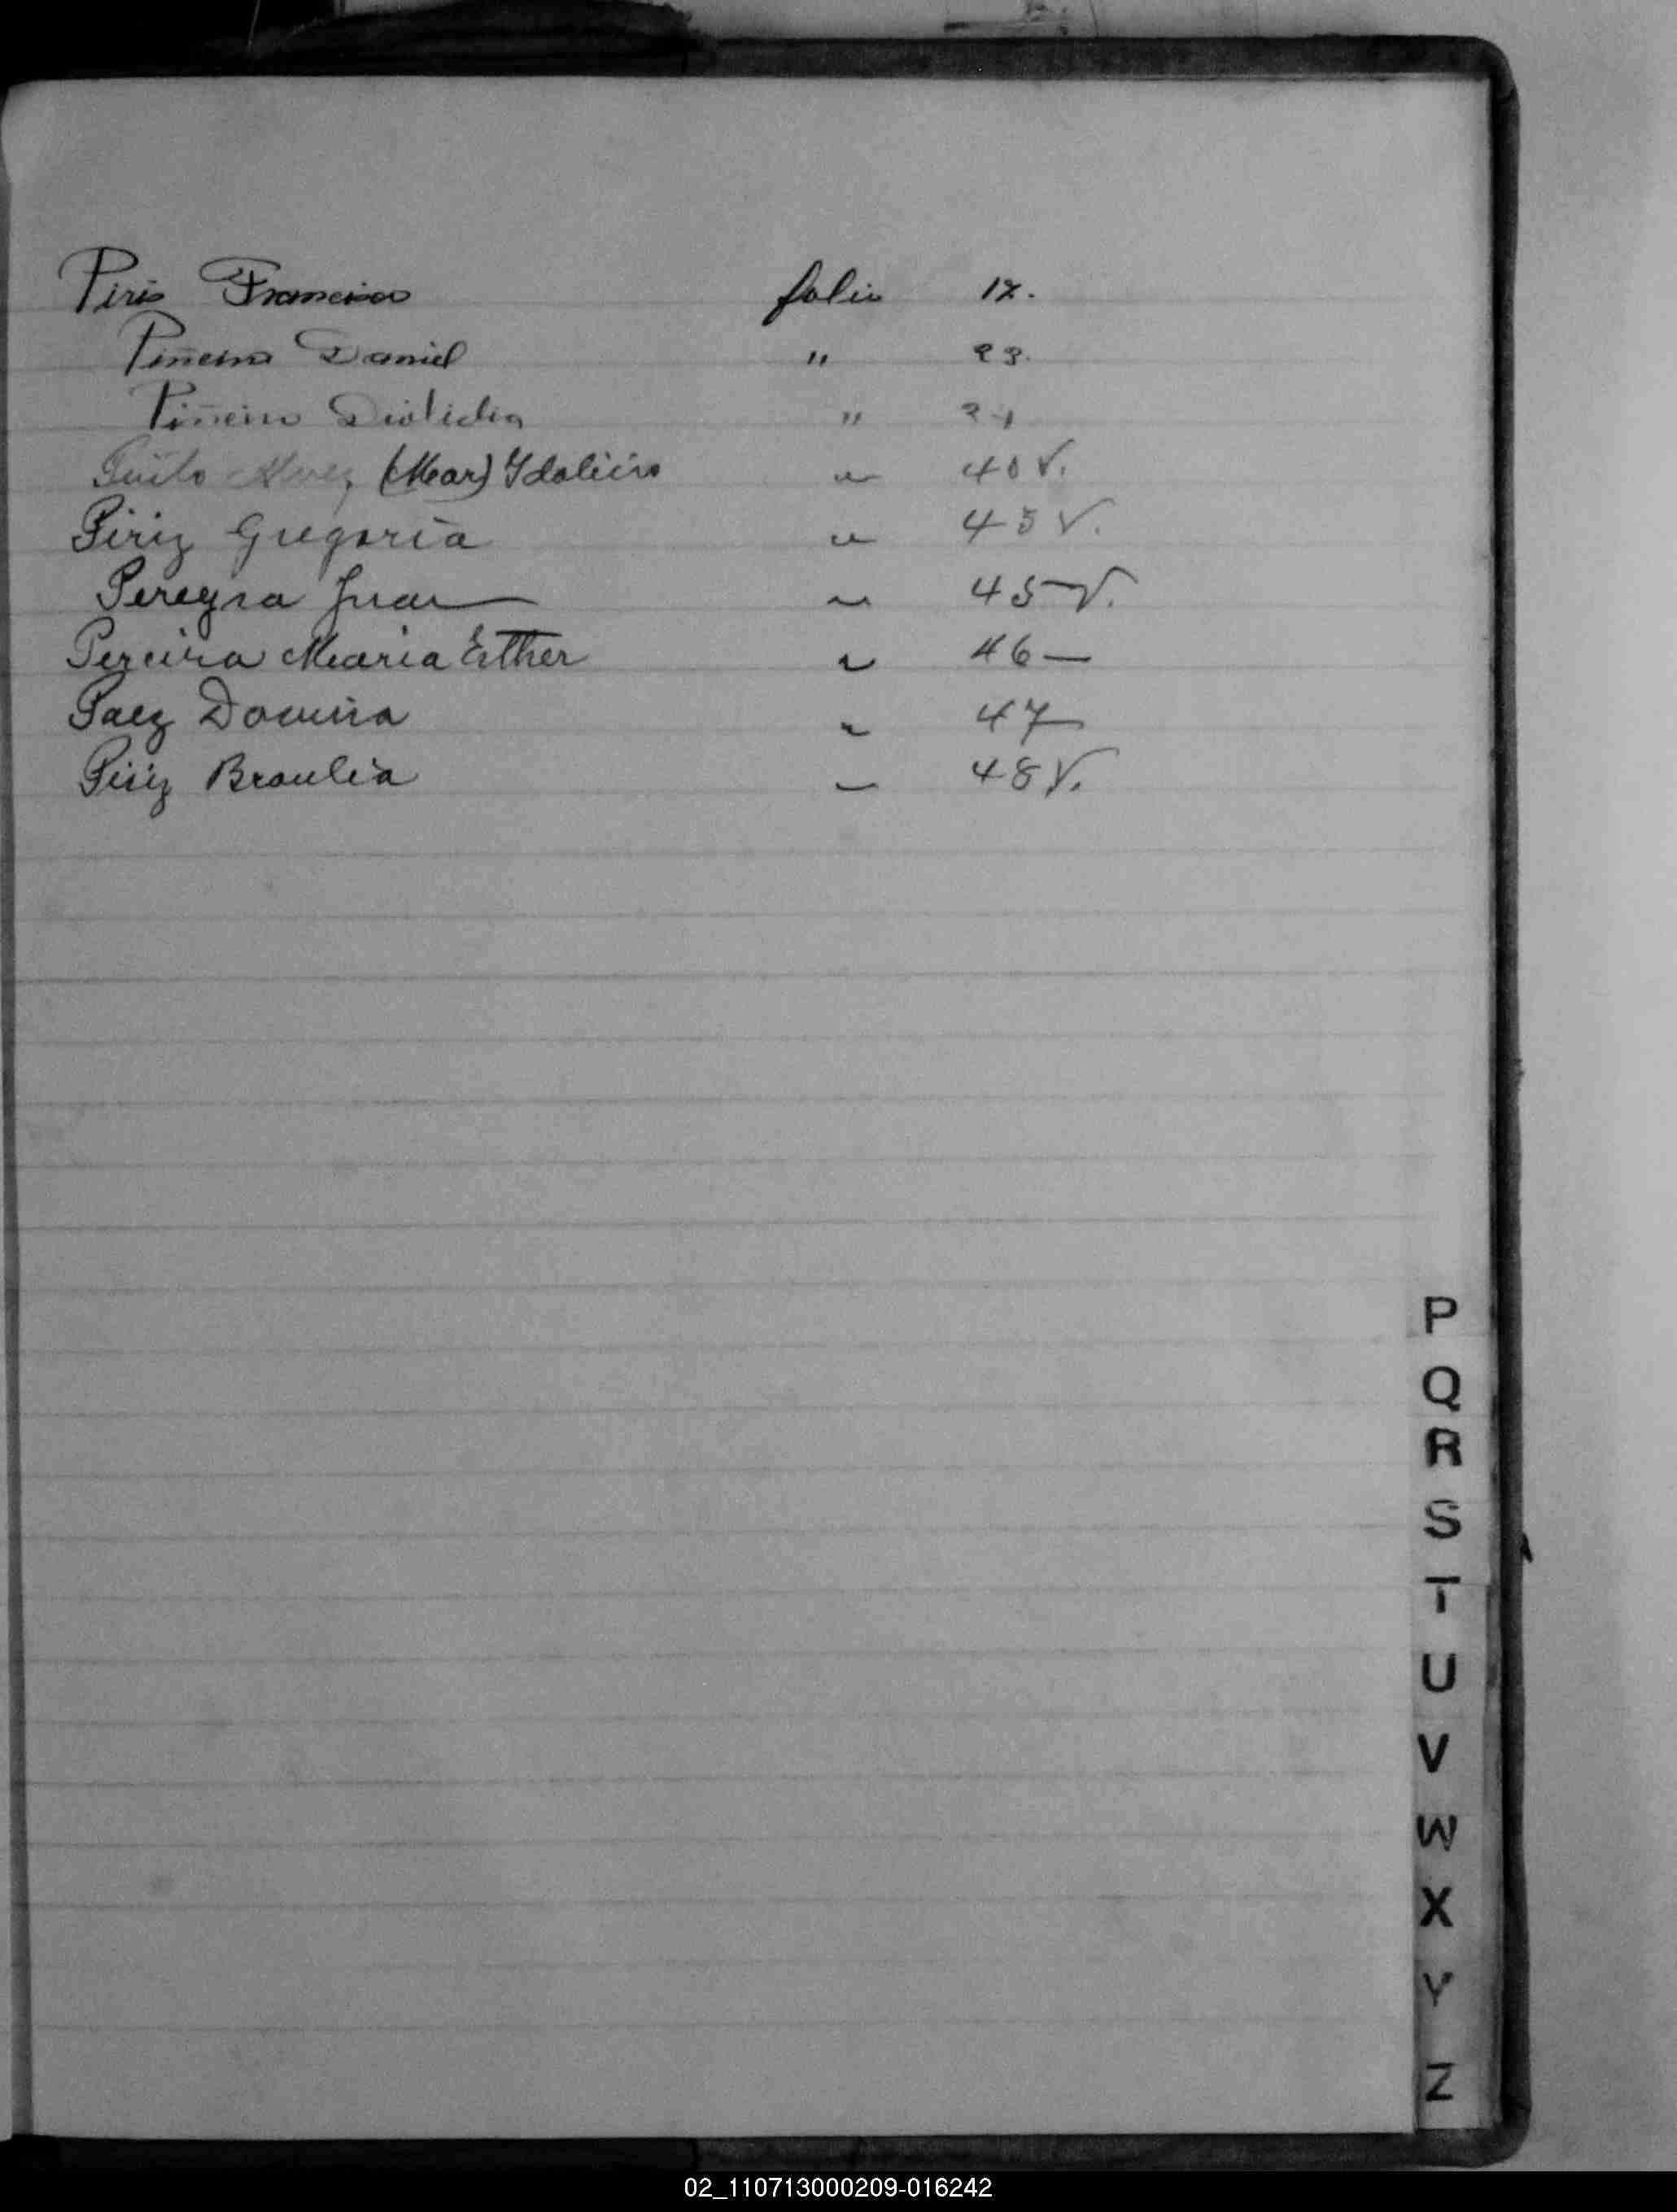 Piris Francisco folio 17.
Piñeiro Daniel " 23.
Piñeiro " 24
(Mar) Ydalicio " 40 V.
Piriz Gregoria " 43 V.
Pereyra Juan " 45 V.
Pereira Maria Esther " 46 —
Paez " 47
Piriz Braulia " 48 V.
P
Q
R
S
T
U
V
W
X
Y
Z
02_110713000209-016242